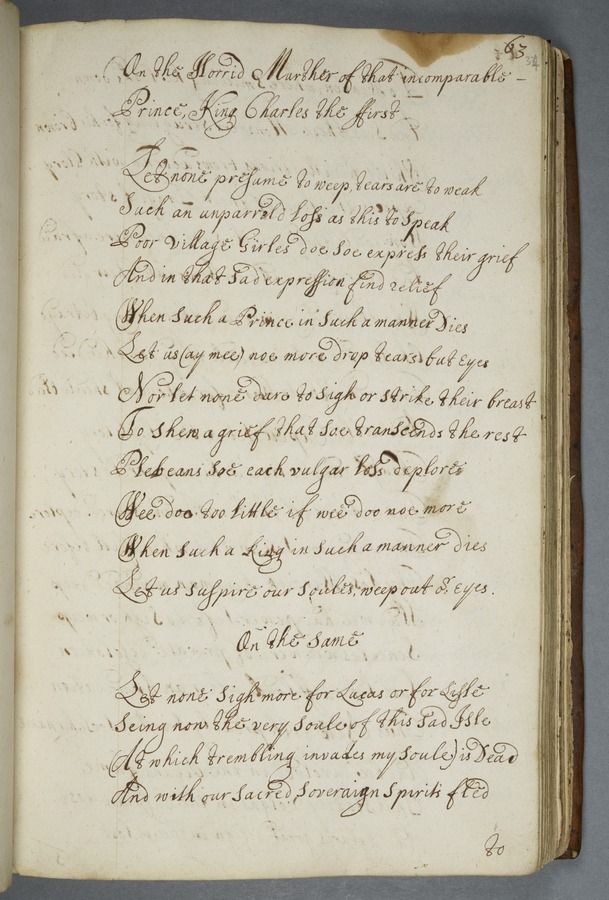 63
34
On the Horrid Murther of that incomparable –
Prince, King Charles the ffirst
Let none presume to weep, tears are to weak
Such an unparreld loss as this to speak
Poor village Girles doe soe express their grief
And in that sad expression find relief
When such a Prince in such a manner Dies
Let us (ay mee) noe more drop tears but eyes
Nor let none dare to sigh or strike their breast
To shew a grief that soe transcends the rest
Plebeans soe each vulgar loss deplores
Wee doe too little if wee doe noe more
When such a King in such a manner dies
Let us suspire our soules, weep out or eyes.
On the same
Let none sigh more for Lucas or for Lisle
Seing now the very soule of this sad Isle
(At which trembling invades my soule) is Dead
And with our sacred soveraign spirits fled
to